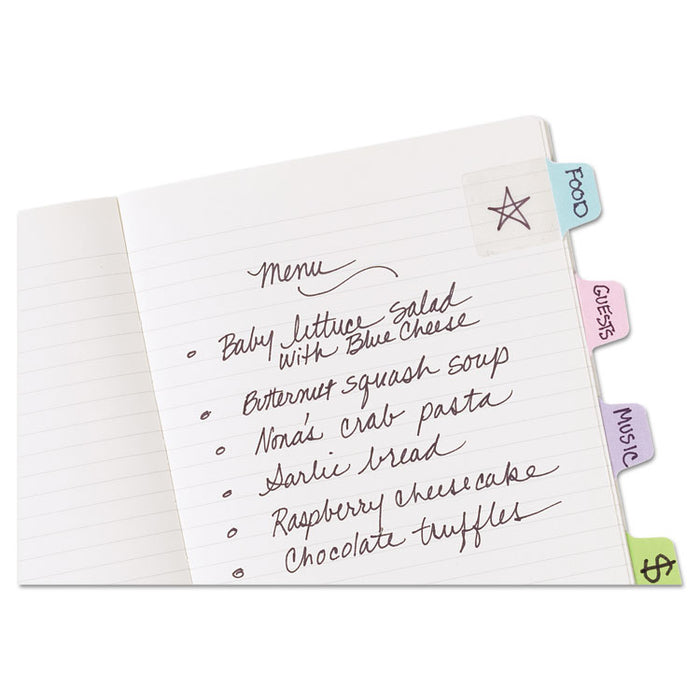 Menu
Baby lettuce salad
with Blue Cheese
Butternut squash soup
Nona's crab pasta
Garlic bread
Raspberry cheesecake
Chocolate truffles
FOOD
GUESTS
MUSIC
$